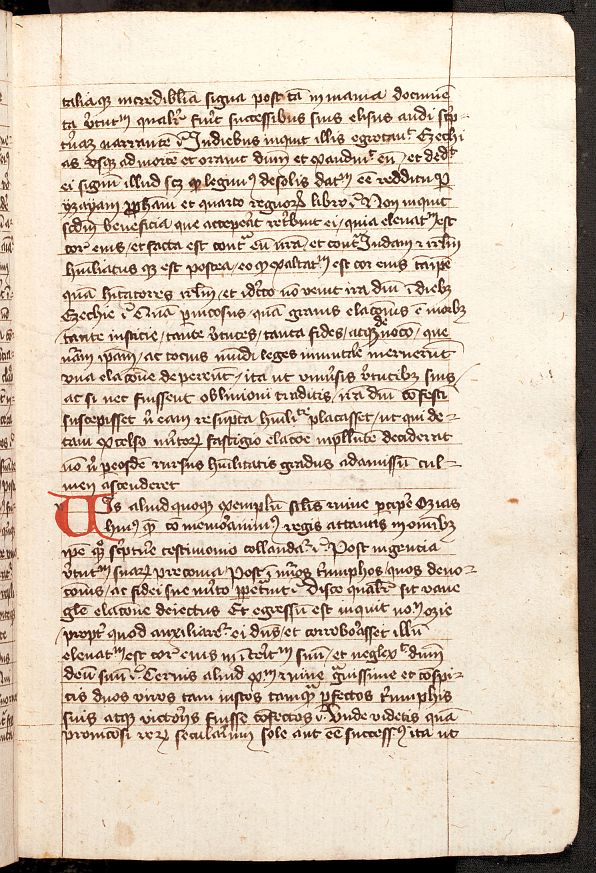 taliaque incredibilia signa post tam inmania documen
ta virtutum qualiter fuerit successibus suis elisus audi scrip
turam narrantem. In diebus inquit illis egrotavit Ezechi
as usque ad mortem et oravit dominum et exaudivit eum / et dedit
ei signum illud scilicet quod legimus de solis datum esse redditu per
yzayam prophetam et quarto regnorum libro. Non inquit
secundum beneficia que acceperat retribuit ei / quia elevatum est
cor eius / et facta est contra eum ira / et contra Iudam et ierusalem
humiliatusque est postea / eo quod exaltatum est cor eius tam ipse
quam habitatores ierusalem / et idcirco non venit ira domini in diebus
Ezechie. Quam perniciosus / quam gravis elationis est morbus
tante iusticie / tante virtutes / tanta fides / atque devotio / que
naturam ipsam / ac tocius mundi leges inmutare meruerunt
una elatione depereunt / ita ut universis virtutibus suis
ac si nec fuissent oblivioni traditis / iram domini confestim
suscepisset nisi eam resumpta humilitate placasset / ut qui de
tam excelso meritorum fastigio elatione inpellente deciderat
non nisi per eosdem rursus humilitatis gradus ad amissum cul
men ascenderet
Vis aliud quoque exemplum similis ruine percipere Ozias
huius quem commemoravimus regis attavus in omnibus
ipse quoque scripture testimonio collaudatur. Post ingencia
virtutum suarum preconia / Post innumeros triumphos / quos devo
cionis / ac fidei sue merito perpetravit. Disce qualiter sit vane
glorie elatione deiectus Et egressum est inquit nomen ozie
propter quod auxiliaretur ei dominus / et corroborasset illum
elevatum est cor eius in interitum suum / et neglexit dominum
deum suum. Cernis aliud exemplum ruine gravissime et conspi
cis duos viros tam iustos tamque perfectos triumphis
suis atque victoriis fuisse confectos. Unde videtis quam
perniciosi rerum secularium soleant esse successus ita ut